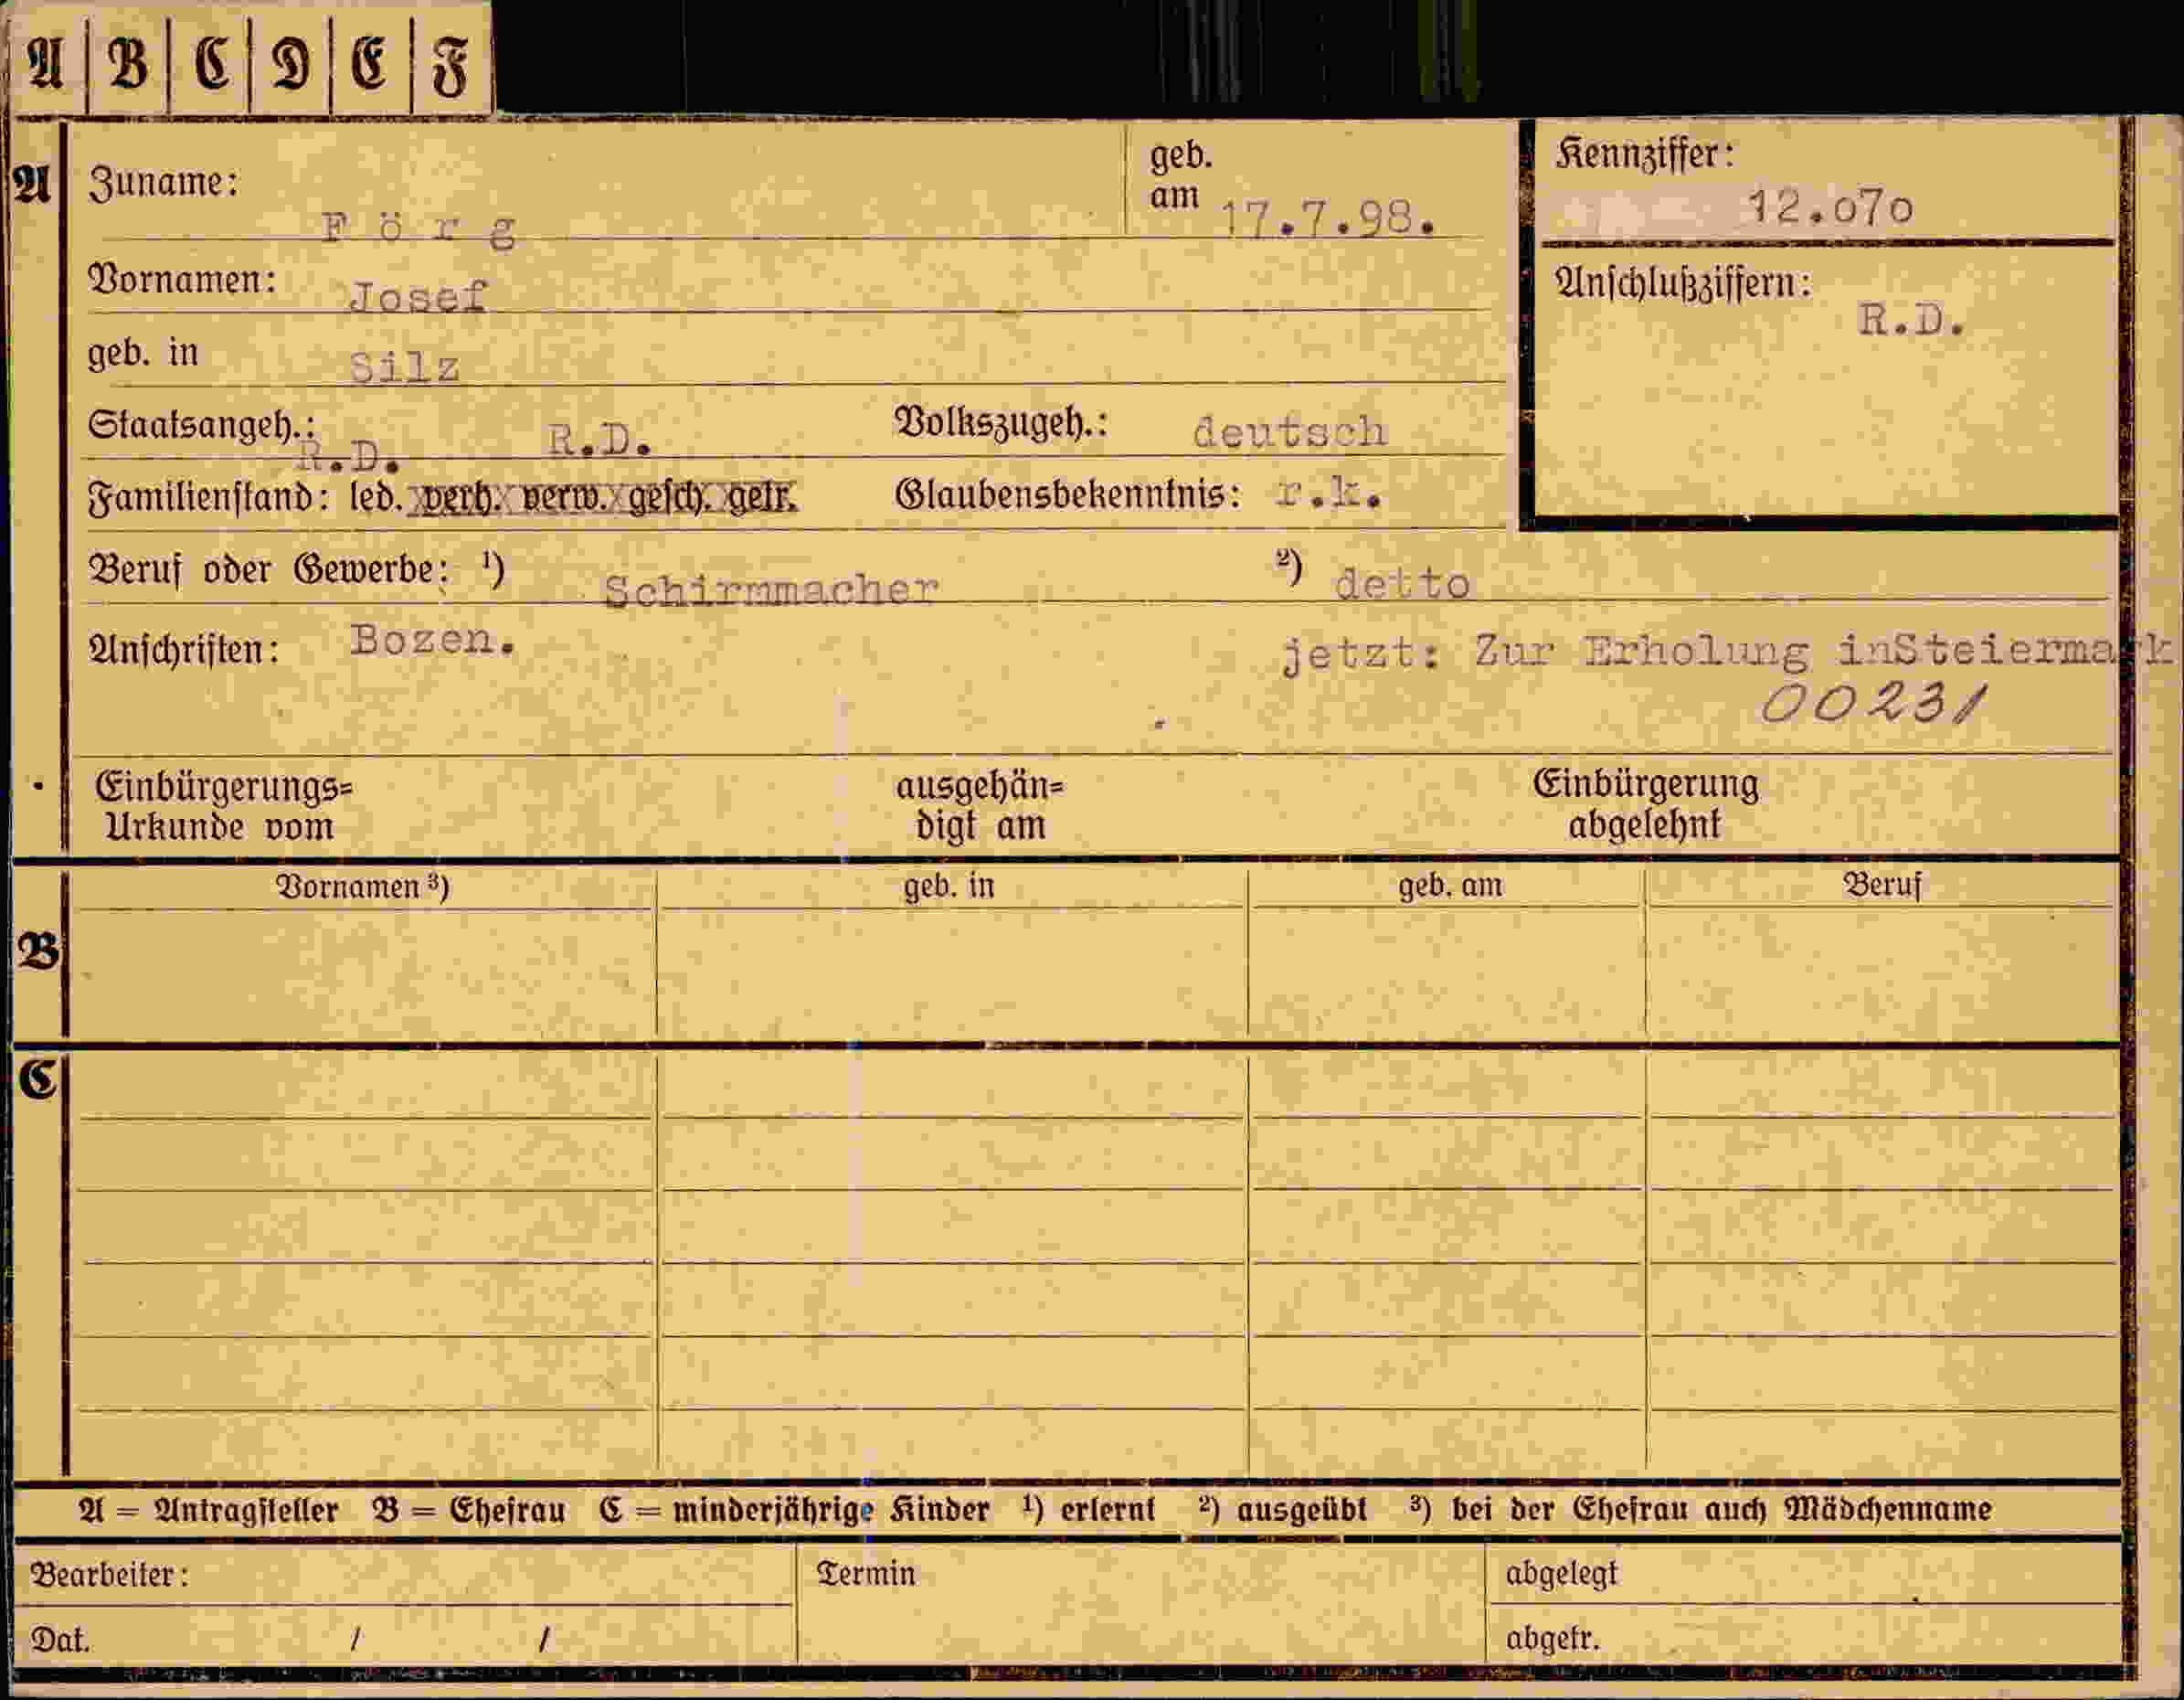 A B C D E F
A Zuname: F ö r g geb. am 17.7.98. Kennziffer: 12.070
Vornamen: Josef Anschlußziffern: R.D.
geb. in Silz
Staatsangeh.: R.D. R.D. Volkszugeh.: deutsch
Familienstand: led. verh. verw. gesch. getr. Glaubensbekenntnis: r.k.
Beruf oder Gewerbe: ¹) Schirmmacher ²) detto
Anschriften: Bozen. jetzt: Zur Erholung inSteiermark
00231
Einbürgerungs= ausgehän= Einbürgerung
Urkunde vom digt am abgelehnt
Vornamen ³) geb. in geb. am Beruf
B
C
A = Antragsteller B = Ehefrau C = minderjährige Kinder ¹) erlernt ²) ausgeübt ³) bei der Ehefrau auch Mädchenname
Bearbeiter: Termin abgelegt
Dat. / / abgetr.